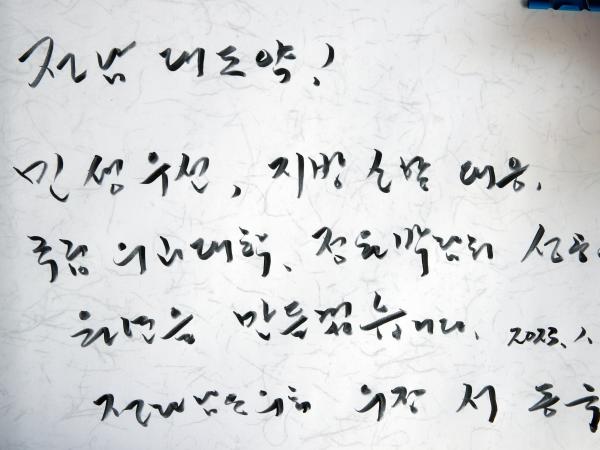 전남 대도약!
민생우선, 지방소멸 대응,
국립 의과대학, 정원박람회 성공
원년을 만들겠습니다. 2023. 1.
전라남도의회 의장 서동욱